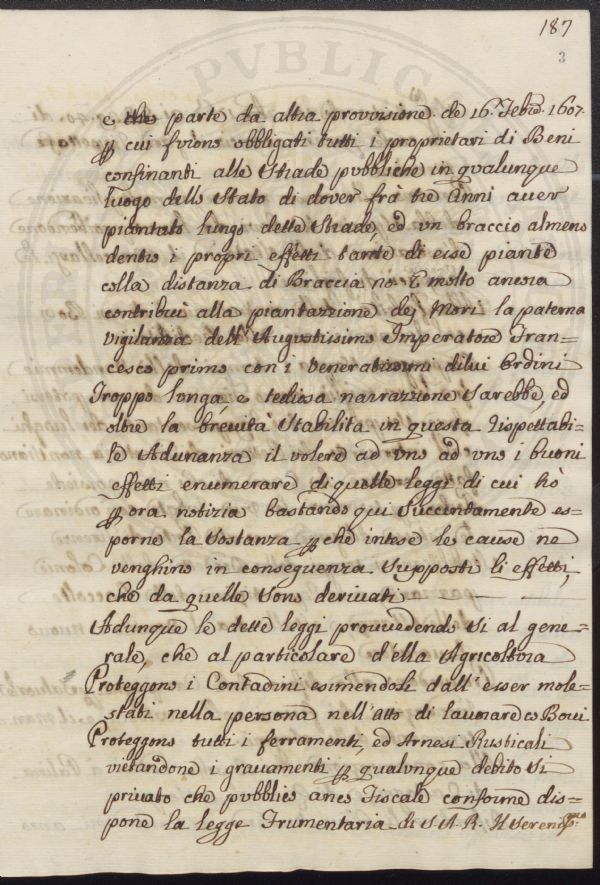 187
3
e che parte da altra provvisione de 16. Febro. 1607.
p cui furono obbligati tutti i proprietari di Beni
confinanti alle Strade pubbliche in qualunque
luogo dello Stato di dover frà tre Anni aver
piantato lungo dette Strade, ed un braccio almeno
dentro i propri effetti tante di esse piante
colla distanza di Braccia no E molto ancora
contribuì alla piantazzione dej Mori la paterna
vigilanza dell'Augustissimo Imperatore Fran=
cesco primo con i veneratissimi di lui Ordini
Troppo longa, e tediosa narrazzione sarebbe, ed
oltre la brevità stabilita in questa rispettabi=
le Adunanza il volere ad uno ad uno i buoni
effetti enumerare di quelle leggi di cui hò
p ora notizia bastando qui succintamente es=
porne la sostanza p che intese le cause ne
venghino in conseguenza supposti li effetti,
che da quelle sono derivati
Adunque le dette leggi provvedendo si al gene=
rale, che al particolare d'ella Agricoltura
Proteggono i Contadini esimendoli dall'esser mole=
stati nella persona nell'atto di lavorare co Bovi
Proteggono tutti i ferramenti, ed Arnesi Rusticali
vietandone i gravamenti p qualunque debito si
privato che pubblico anco Fiscale conforme dis=
pone la legge Frumentaria di S. A. R. Il Sereniss.mo
PUBLIC